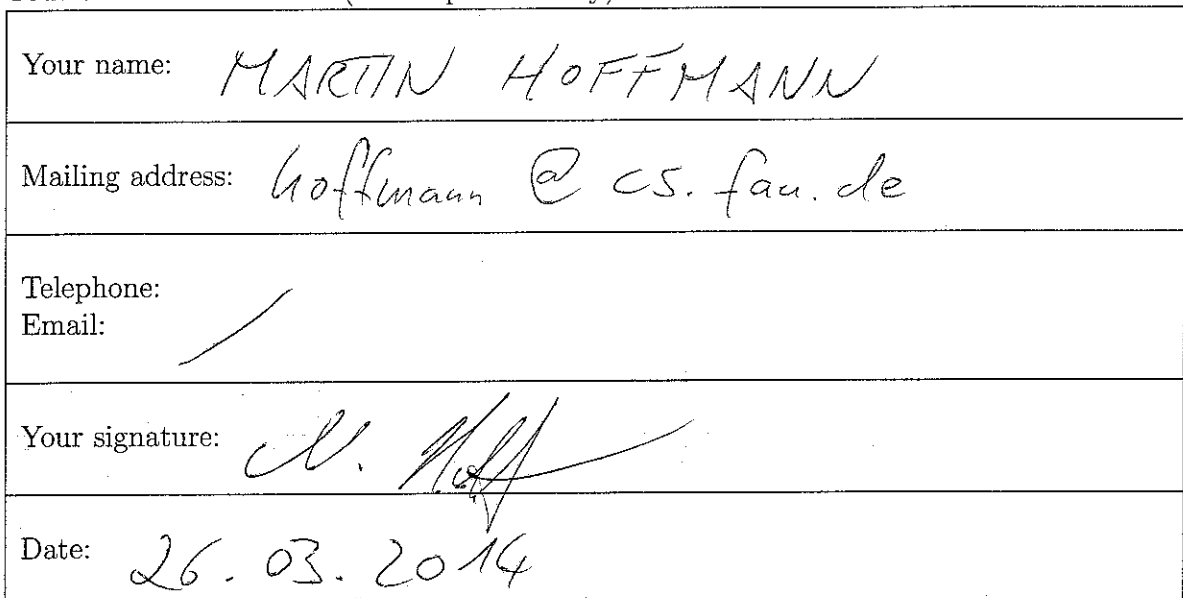 Your name: MARTIN HOFFMANN
Mailing address: hoffmann @ cs.fau.de
Telephone:
Email:
Your signature: M. Hoff
Date: 26.03.2014